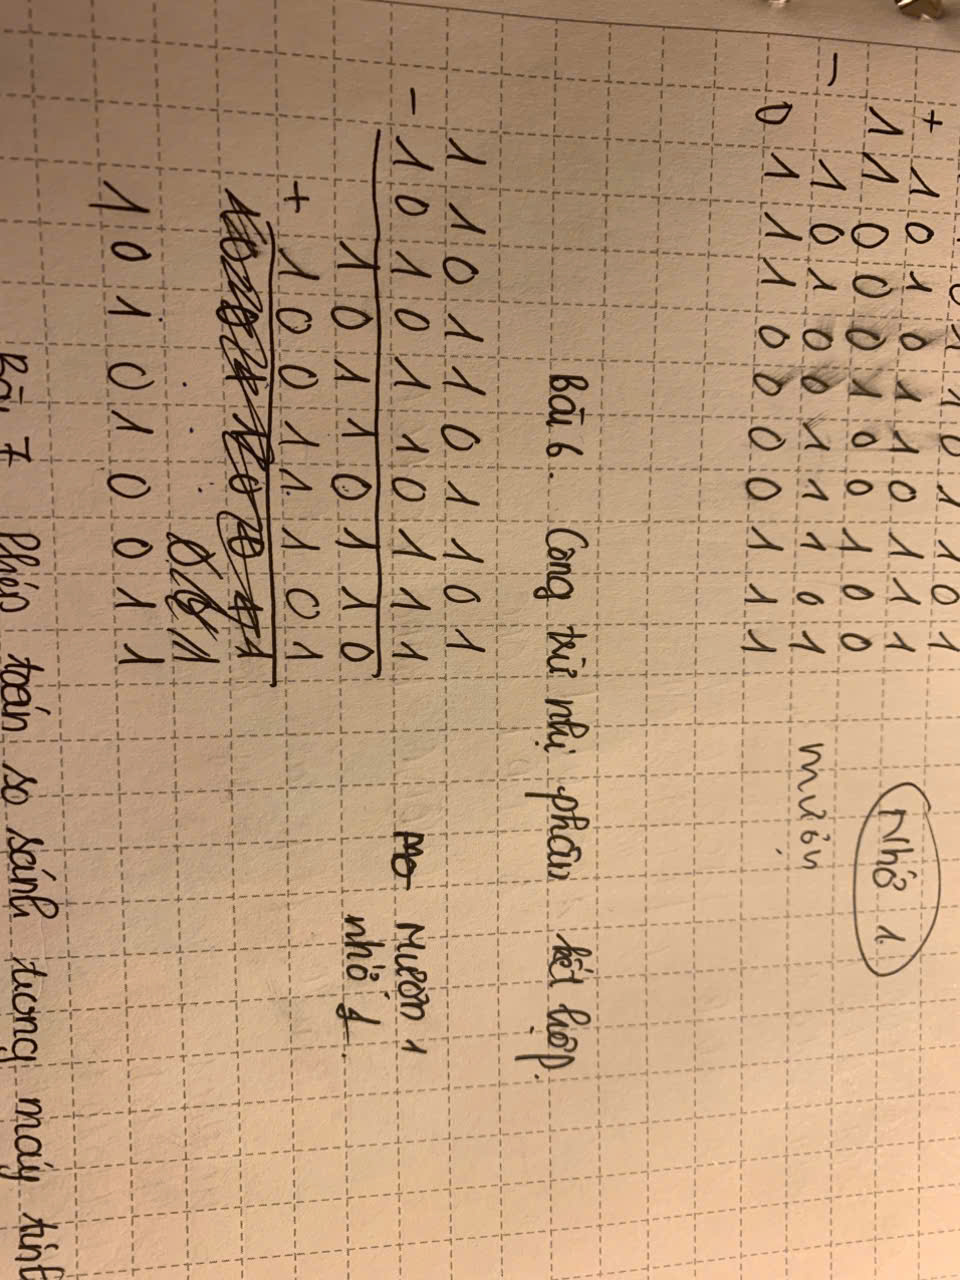 0 1 1 0 1 1 0 1
+ 1 0 1 0 1 1 0 1 1 1
1 1 0 0 0 1 0 0 1 0 0 Nhớ 1
- 1 0 1 0 0 1 1 1 0 1 mượn
0 1 1 1 0 0 0 0 1 1 1
Bài 6. Cộng trừ nhị phân kết hợp.
1 1 0 1 1 0 1 1 0 1
- 1 0 1 0 1 1 0 1 1 1 Mượn 1
1 0 1 1 0 1 1 0 nhớ 1
+ 1 0 0 1 1 1 0 1
1 0 1 0 1 0 0 1 1
Bài 7 Phép toán so sánh trong máy tính